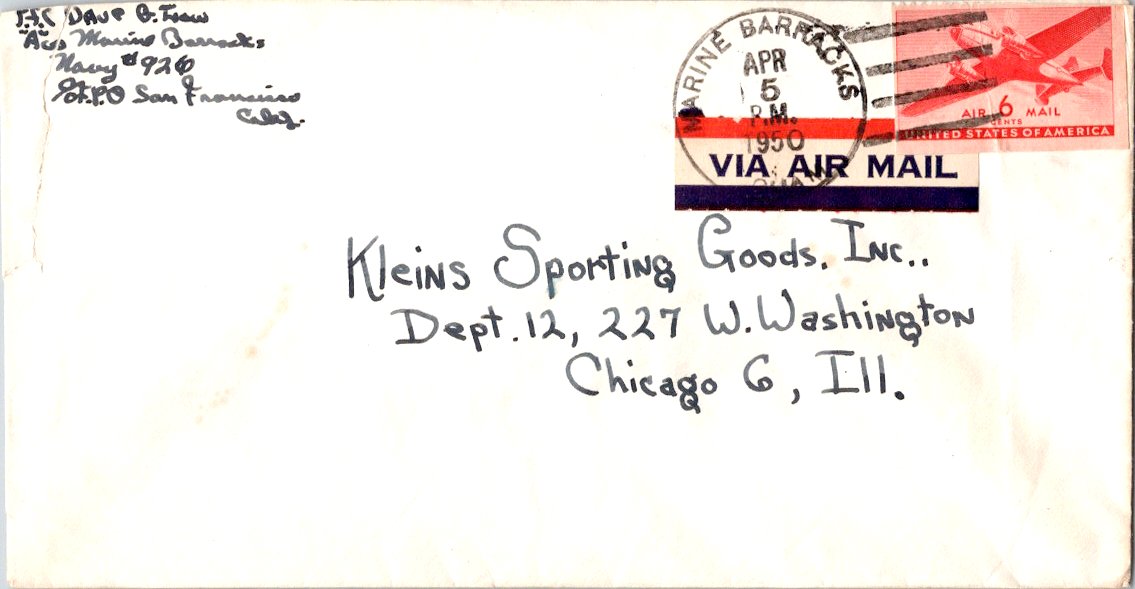 Dave G.
"A" Co Marine Barracks
Navy # 926
℅ F.P.O San Francisco
Calif.
MARINE BARRACKS
APR
5
P.M.
1950
GUAM
AIR 6 MAIL
CENTS
UNITED STATES OF AMERICA
VIA AIR MAIL
Kleins Sporting Goods, Inc..
Dept. 12, 227 W. Washington
Chicago 6, Ill.